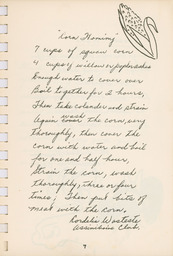 "Corn Hominy"
7 cups of squaw corn
4 cups of willow or poplar ashes
Enough water to cover over
Boil together for 2 hours,
Then take colander and strain
Again wash the corn, very
thoroughly, then cover the
corn with water and boil
for one and half hour,
Strain the corn, wash
thoroughly, three or four
times; Then put bits of
meat with the corn,
Cordelia
Assiniboine Club.
7